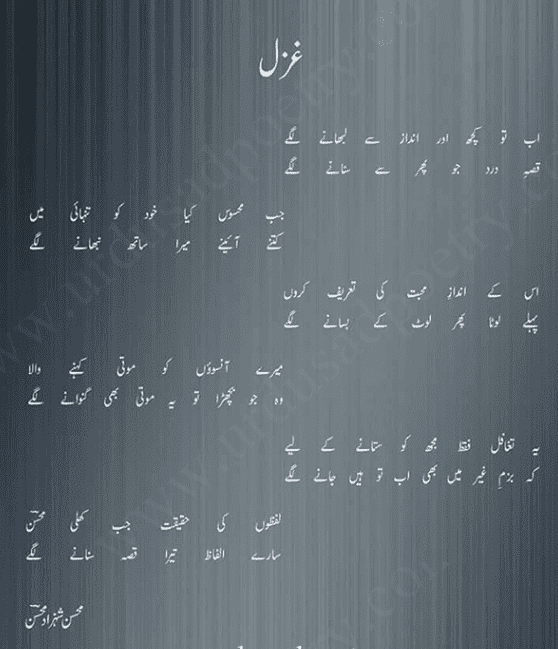 غزل
اب تو کچھ اور انداز سے لبھانے لگے
قصۂ درد جو پھر سے سنانے لگے
جب محسوس کیا خود کو تنہائی میں
کتنے آئینے میرا ساتھ نبھانے لگے
اس کے اندازِ محبت کی تعریف کروں
پہلے لوٹا پھر لوٹ کے بسانے لگے
میرے آنسوؤں کو موتی کہنے والا
وہ جو بچھڑا تو یہ موتی بھی گنوانے لگے
یہ تغافل فقط مجھ کو ستانے کے لیے
کہ بزمِ غیر میں بھی اب تو ہیں جانے لگے
لفظوں کی حقیقت جب کھلی محسنؔ
سارے الفاظ تیرا قصہ سنانے لگے
محسن شہزاد محسنؔ
www.urdusadpoetry.com